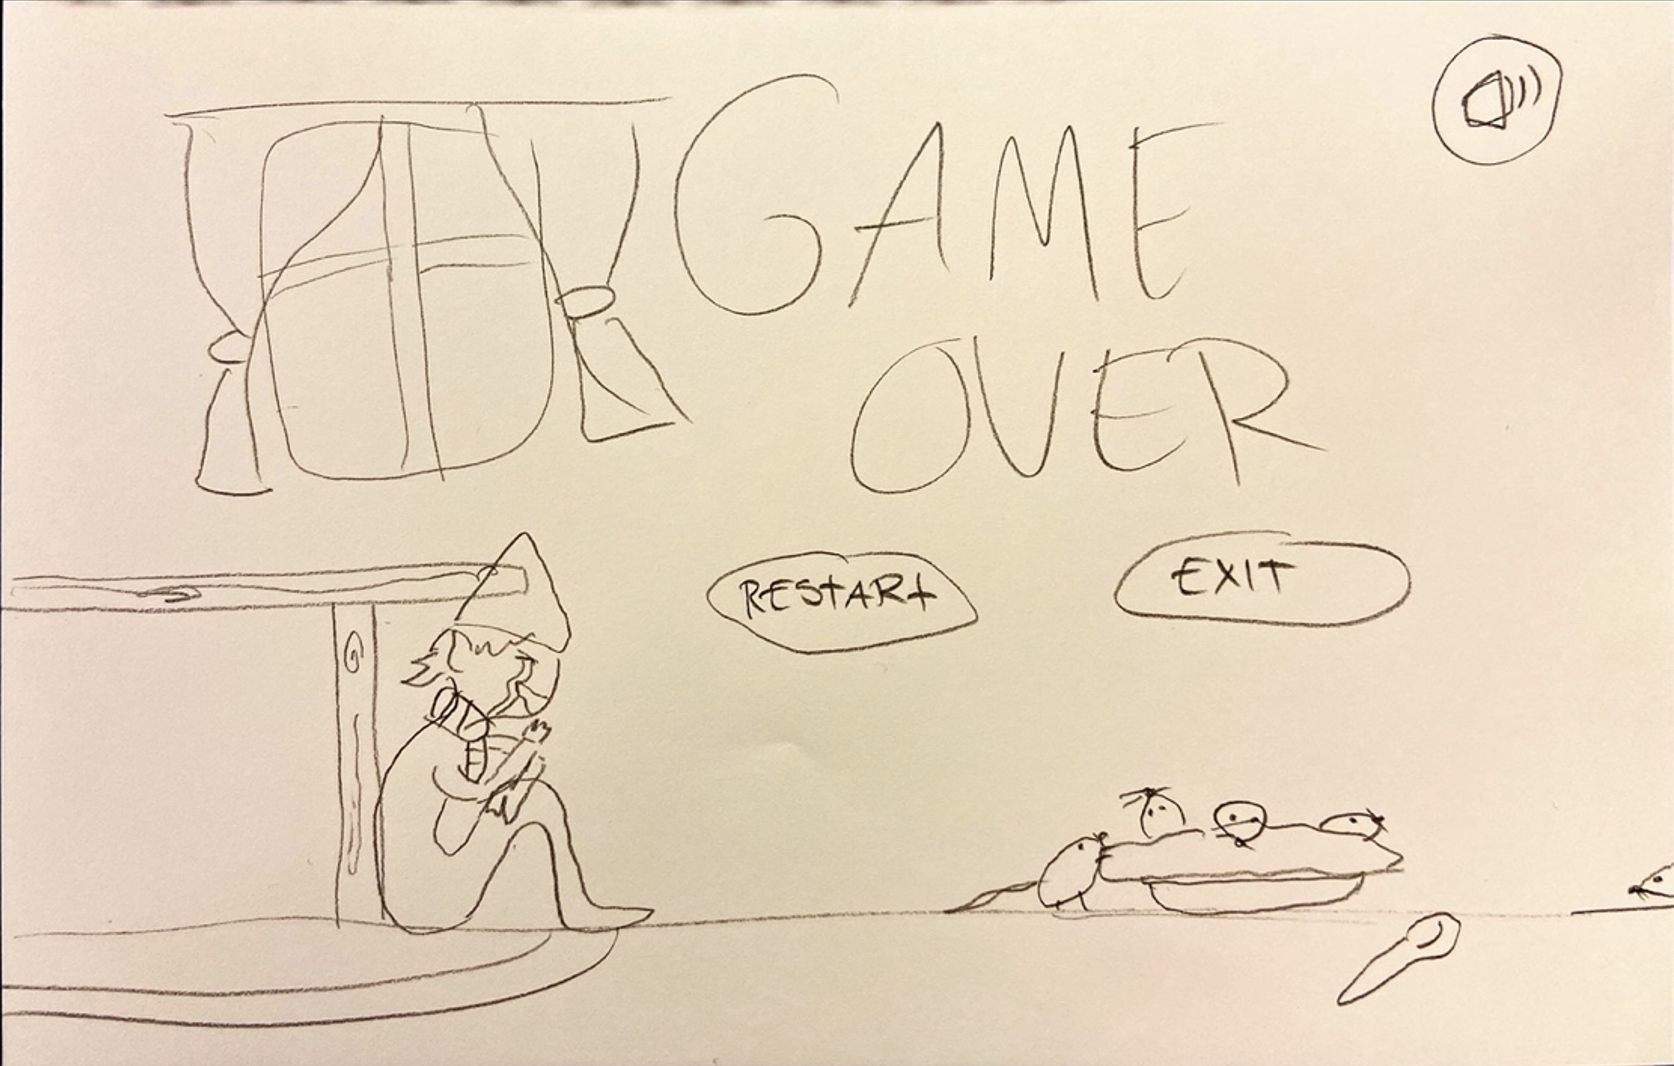 GAME
OVER
RESTART
EXIT